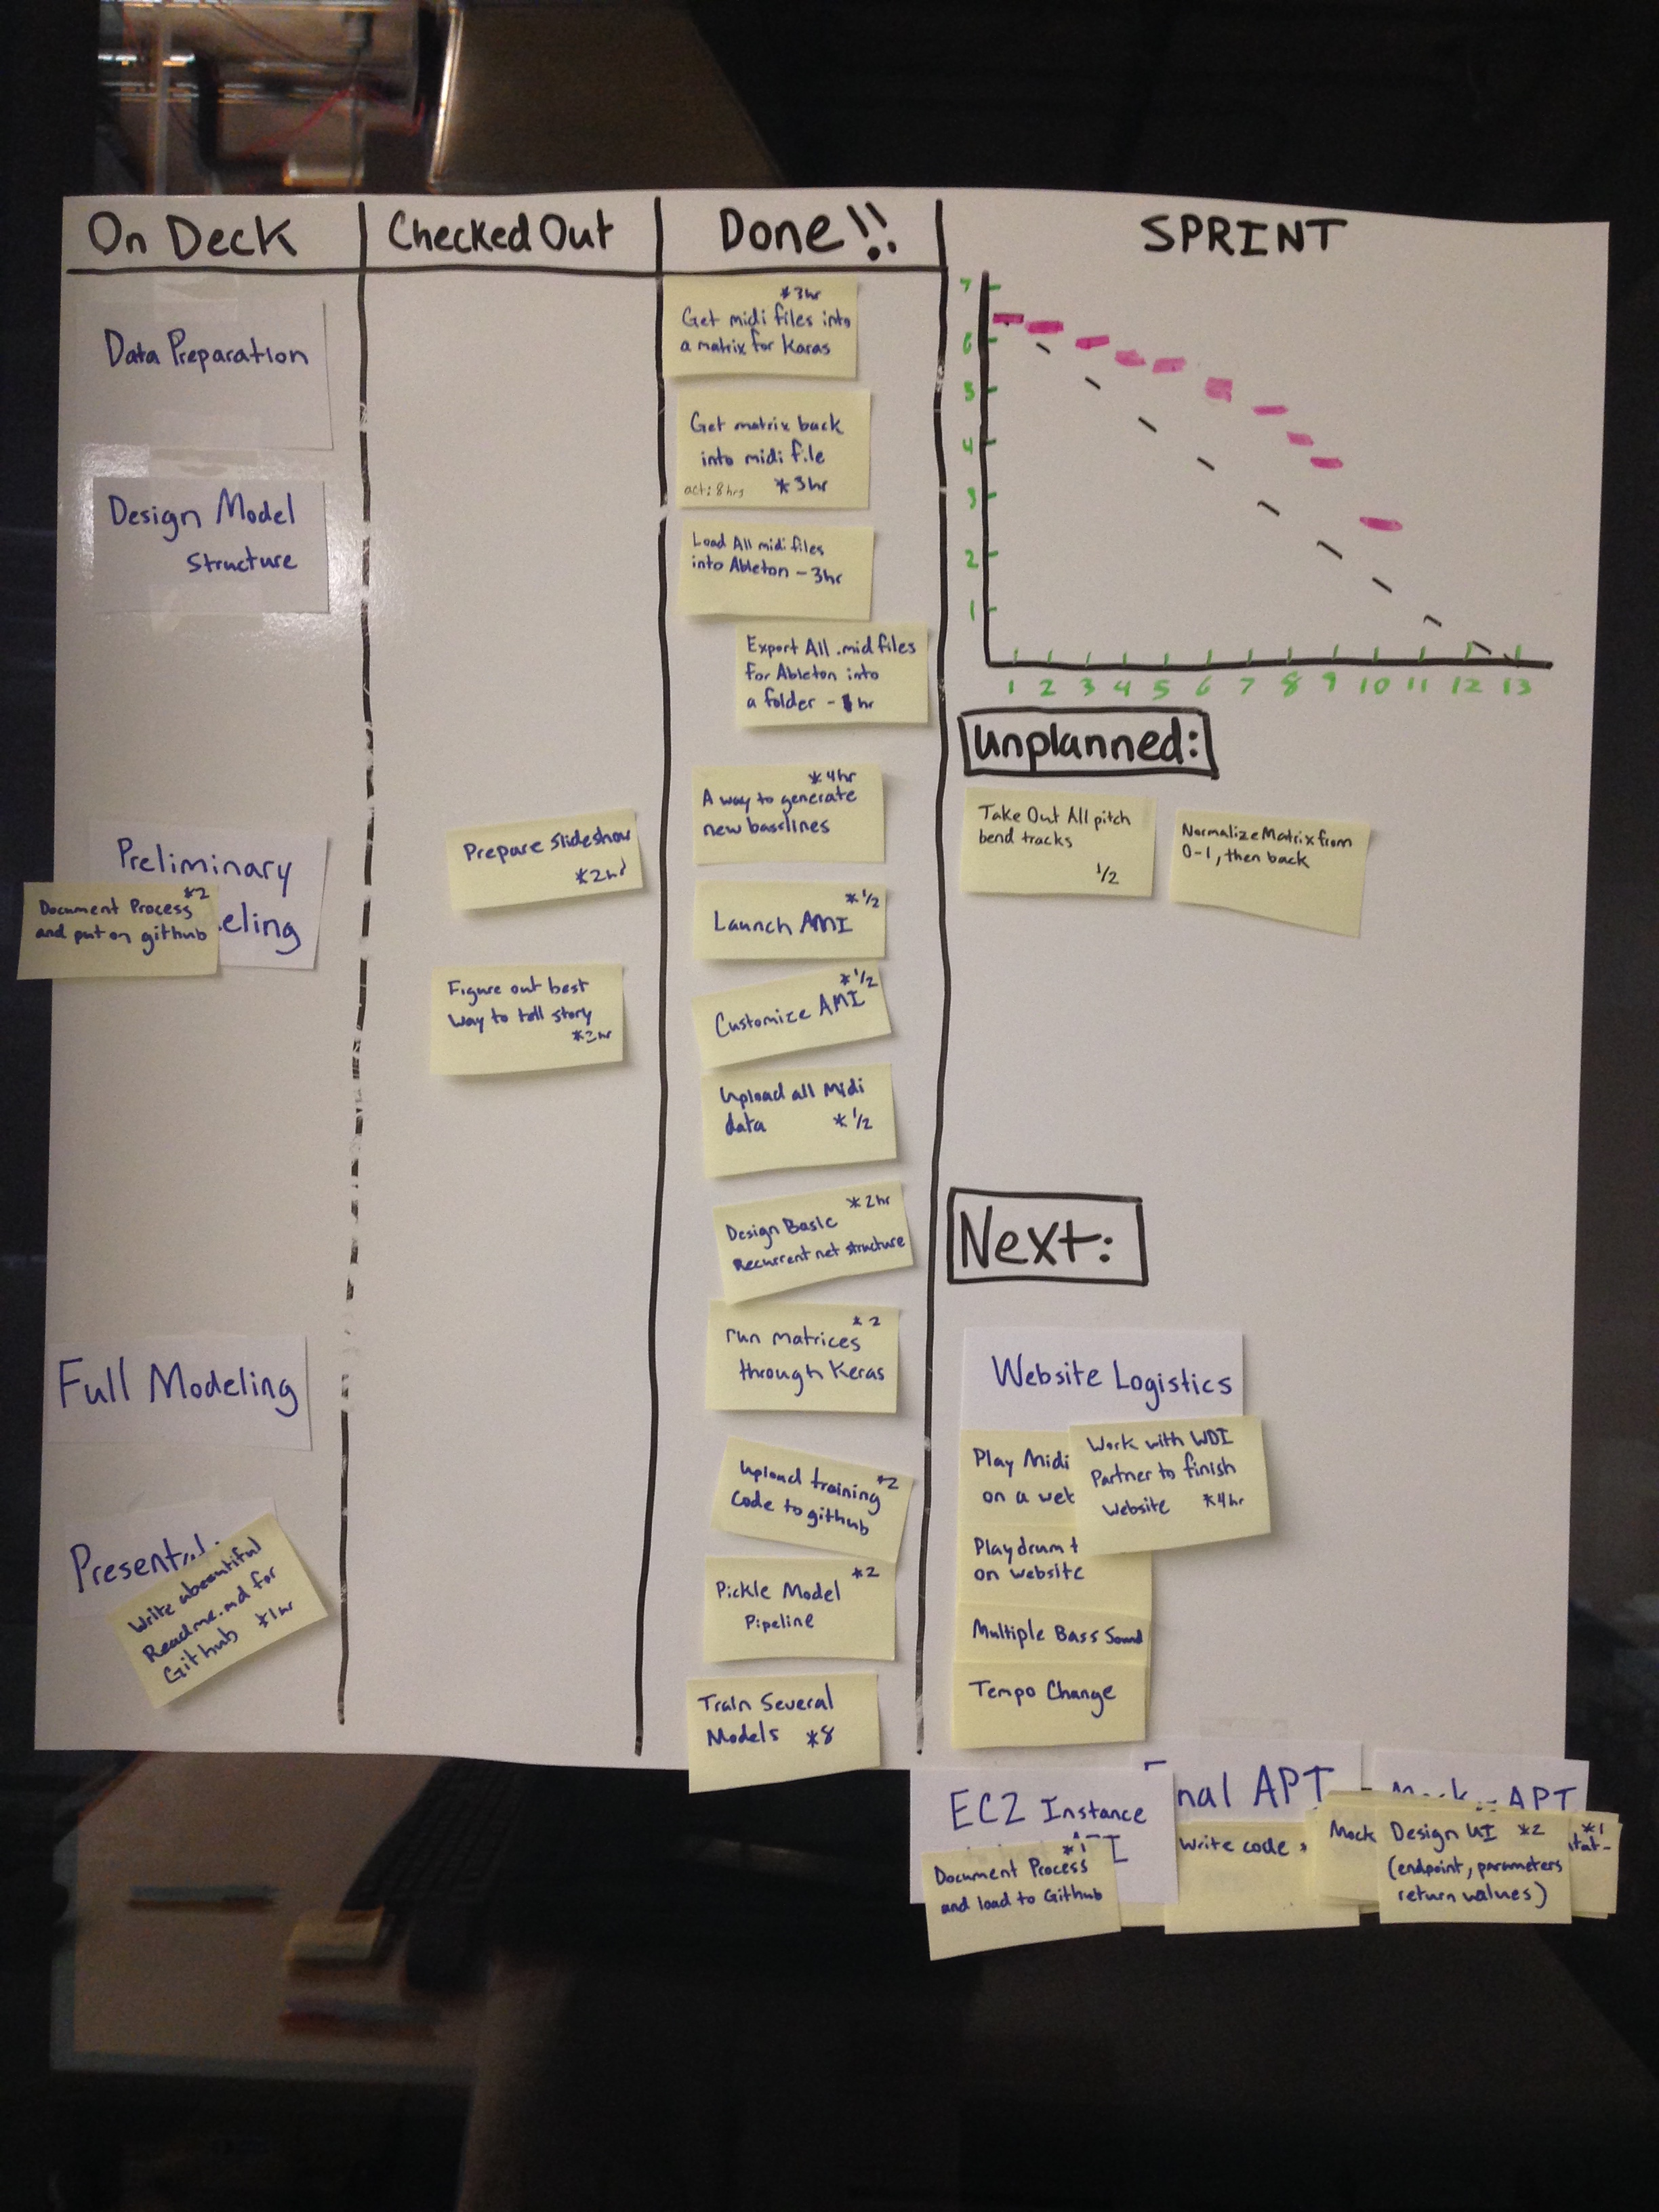 On Deck
Checked Out
Done!!
SPRINT
Data Preparation
Design Model
Structure
Preliminary
eling
*2
Document Process
and put on github
Full Modeling
Write a beautiful
Readme.md for
Github *1hr
Prepare Slideshow
*2hr
Figure out best
way to tell story
*2hr
*3hr
Get midi files into
a matrix for Karas
Get matrix back
into midi file
act: 8hrs *3hr
Load All midi files
into Ableton - 3hr
Export All .mid files
for Ableton into
a folder - 1 hr
*4hr
A way to generate
new basslines
*1/2
Launch AMI
*1/2
Customize AMI
Upload all Midi
data *1/2
*2hr
Design Basic
Recurrent net structure
*2
run matrices
through Keras
*2
Upload training
code to github
*2
Pickle Model
Pipeline
Train Several
Models *8
7
6
5
4
3
2
1
1 2 3 4 5 6 7 8 9 10 11 12 13
Unplanned:
Take Out All pitch
bend tracks
1/2
Normalize Matrix from
0-1, then back
Next:
Website Logistics
Play Midi
on a
Work with WDI
Partner to finish
Website *4hr
Play drum
on website
Multiple Bass Sound
Tempo Change
EC2 Instance
*1
Document Process
and load to Github
nal API
Write code
API
Mock
Design UI *2
(endpoint, parameters
return values)
*1